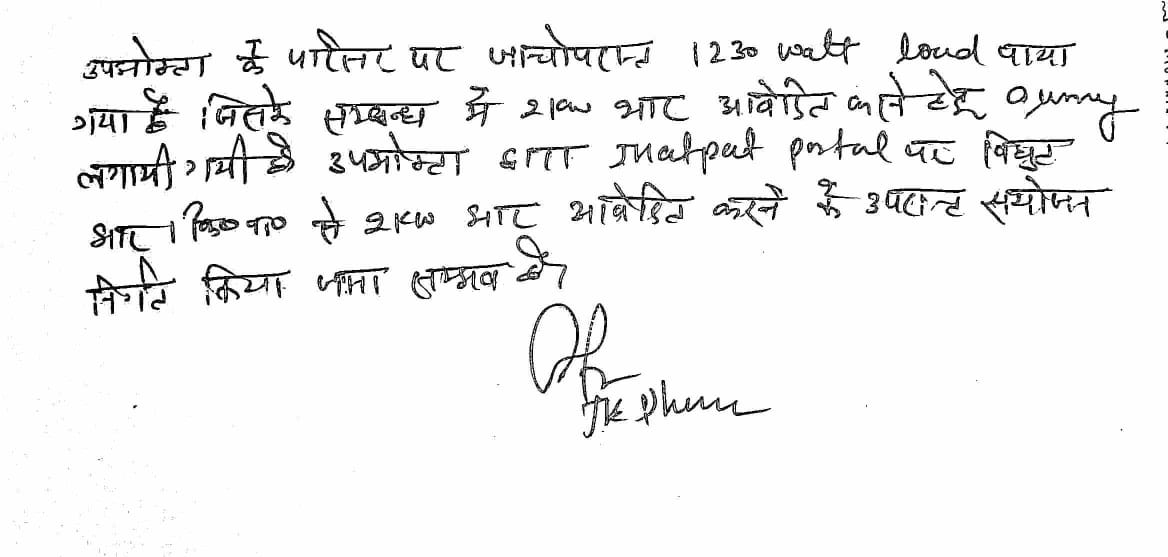 उपभोक्ता के परिसर पर जाचोपरान्त 1230 watt load पाया
गया है जिसके सम्बन्ध में 2kw भार आवेदित करने हेतु Query
लगायी गयी है उपभोक्ता द्वारा Jhatpat portal पर विधुत
भार 1 कि0 वा0 से 2KW भार आवेदित करने के उपरान्त संयोजन
निर्गत किया जाना सम्भव है।
JE